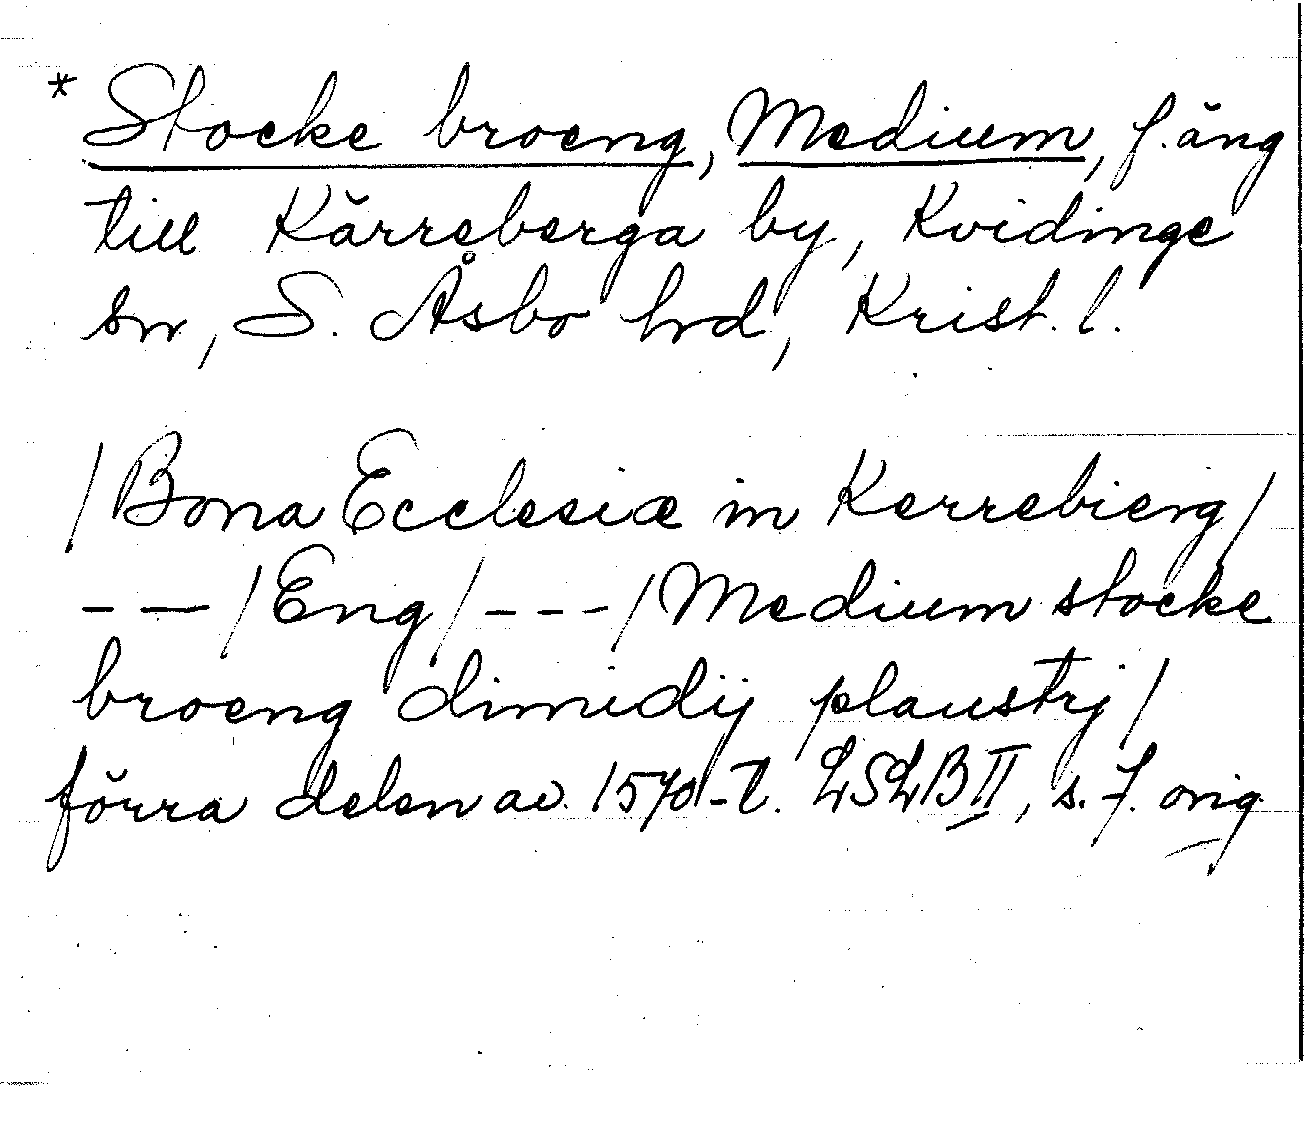 * Stocke broeng, Medium, f. äng
till Kärreberga by, Kvidinge
sn, S. Åsbo hd, Krist. l.
/Bona Ecclesiæ in Kerrebierg/
- - /Eng/ - - - /Medium stocke
broeng dimidij plaustrj/
förra delen av 1570-t. LSLB II, s. 7. orig